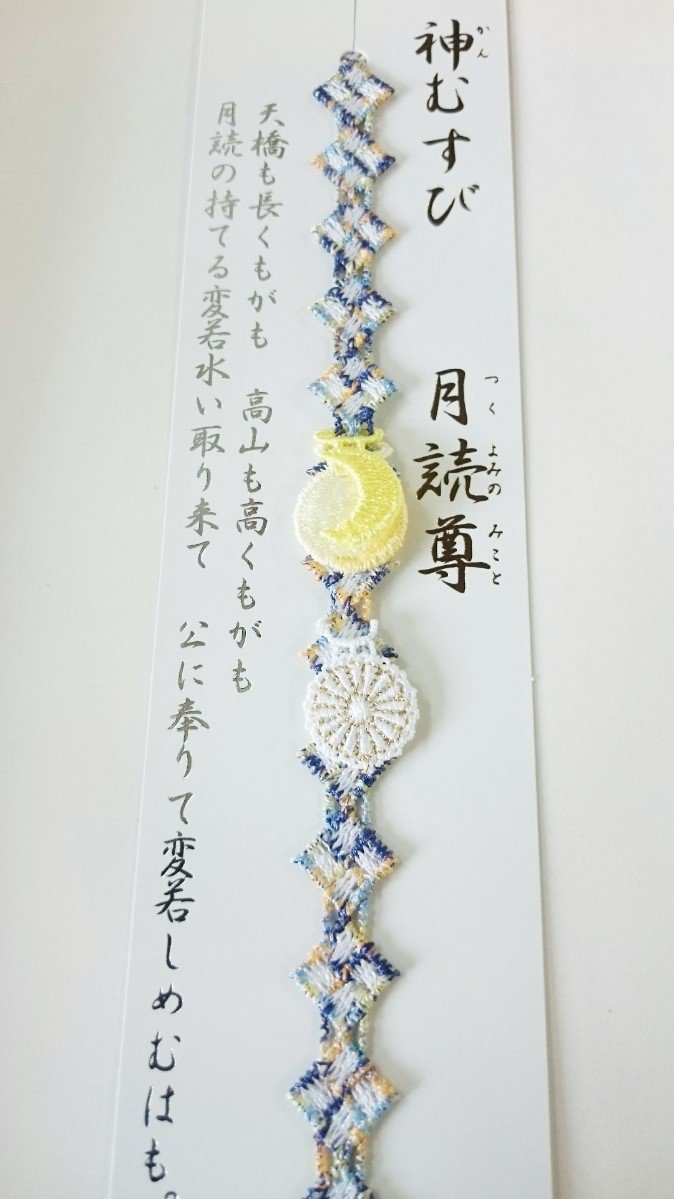 神むすび
かん
月読尊
つく よみの みこと
天橋も長くもがも 高山も高くもがも
月読の持てる変若水い取り来て 公に奉りて変若しめむはも。